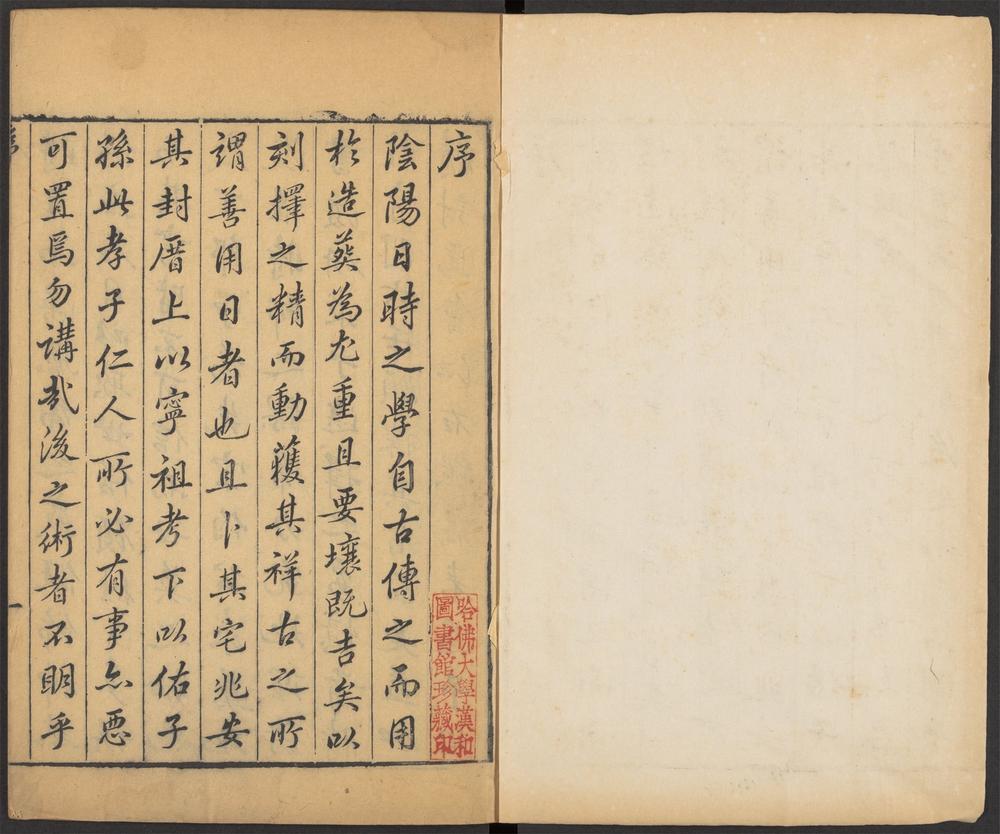 序
陰陽日時之學自古傳之而用
扵造葬為尤重且要壤既吉矣以
刻擇之精而動獲其祥古之所
謂善用日者也且卜其宅兆安
其封厝上以寧祖考下以佑子
孫此孝子仁人所必有事亦惡
可置焉勿講哉後之術者不明乎
哈佛大學漢和
圖書館珍藏印
一